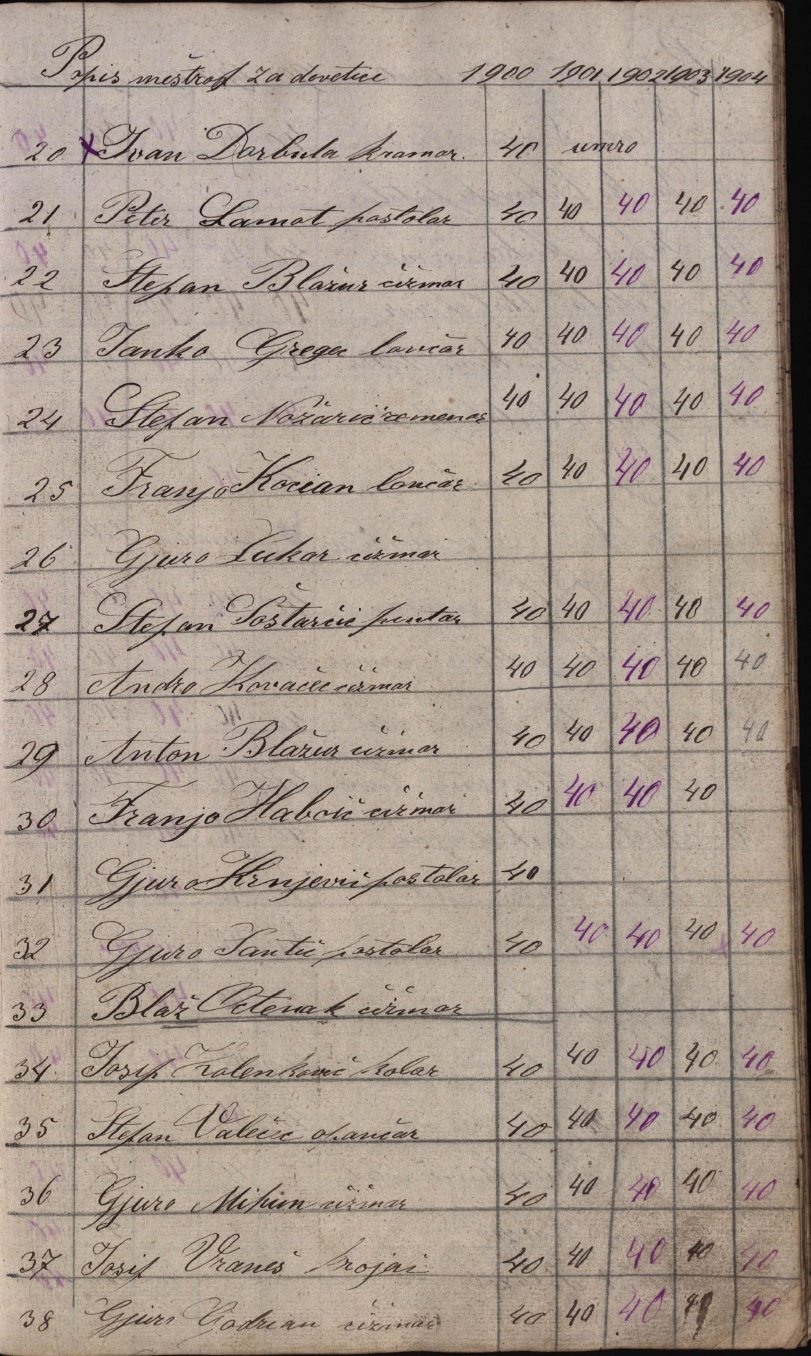 Popis meštrof za devetice 1900 1901 1902 1903 1904
20 x Ivan Dorbula kramar. 40 umro
21 Peter Lamot postolar 40 40 40 40 40
22 Stepan Blažur čižmar 40 40 40 40 40
23 Janko Gregec lončar 40 40 40 40 40
24 Stepan Nožarić 40 40 40 40 40
25 Franjo Kocian lončar 40 40 40 40 40
26 Gjuro Lukar čižmar
27 Stepan Šoštarčić pintar 40 40 40 40 40
28 Andro Kovačec čižmar 40 40 40 40 40
29 Anton Blažur čižmar 40 40 40 40 40
30 Franjo Habcić čižmar 40 40 40 40
31 Gjuro Krnjević postolar 40
32 Gjuro Santić postolar 40 40 40 40 40
33 Blaž Octenak čižmar
34 Josip Kolenković kolar 40 40 40 40 40
35 Stepan Valečic opančar 40 40 40 40 40
36 Gjuro čižmar 40 40 40 40 40
37 Josip Vraneš krojač 40 40 40 40 40
38 Gjuro Godrian čižmar 40 40 40 40